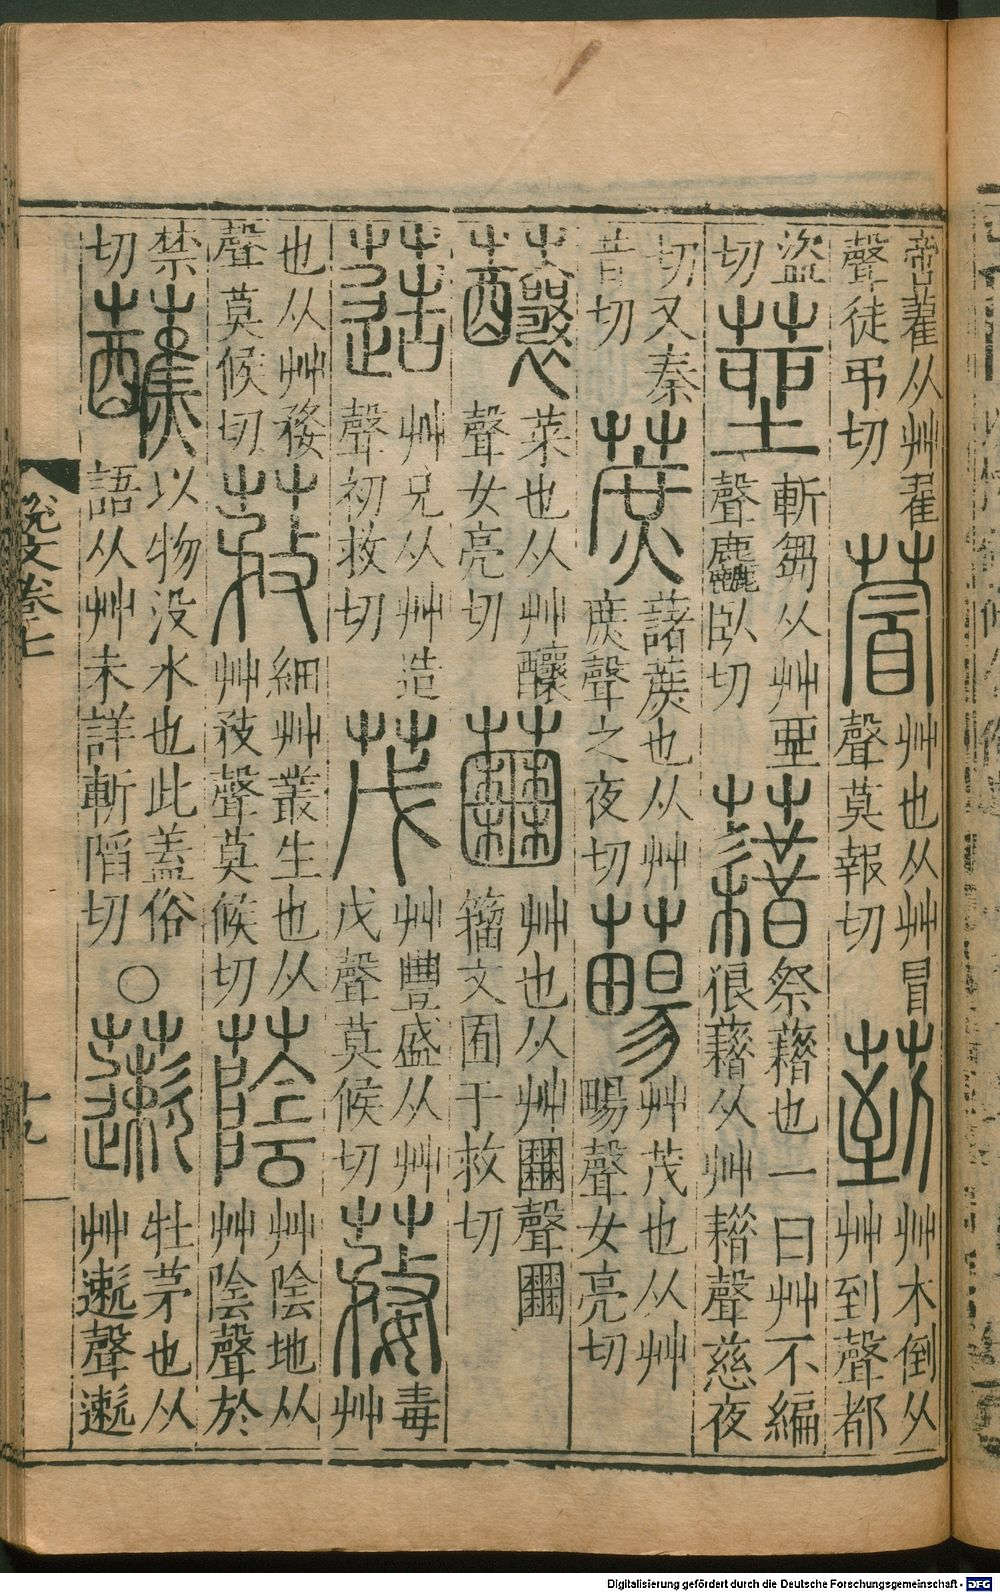 啻藋从艸翟
聲徒弔切
萺
艸也从艸冒
聲莫報切
菿
艸木倒从
艸到聲都
盜
切
莝
斬芻从艸坐
聲麤臥切
藉
祭藉也一曰艸不編
狼藉从艸耤聲慈夜
切又秦
昔切
蔗
藷蔗也从艸
庶聲之夜切
艸茂也从艸
畼聲女亮切
蘸
菜也从艸釀
聲女亮切
艸也从艸𡈹聲𡈹
籀文囿于救切
艸皃从艸造
聲初救切
茂
艸豐盛从艸
戊聲莫候切
蓩
毒
艸
也从艸務
聲莫候切
細艸叢生也从
艸敄聲莫候切
蔭
艸陰地从
艸陰聲於
禁
切
蘸
以物没水也此蓋俗
語从艸未詳斬陷切
○
藗
牡茅也从
艸遬聲遬
說文卷七
十九
Digitalisierung gefördert durch die Deutsche Forschungsgemeinschaft - DFG